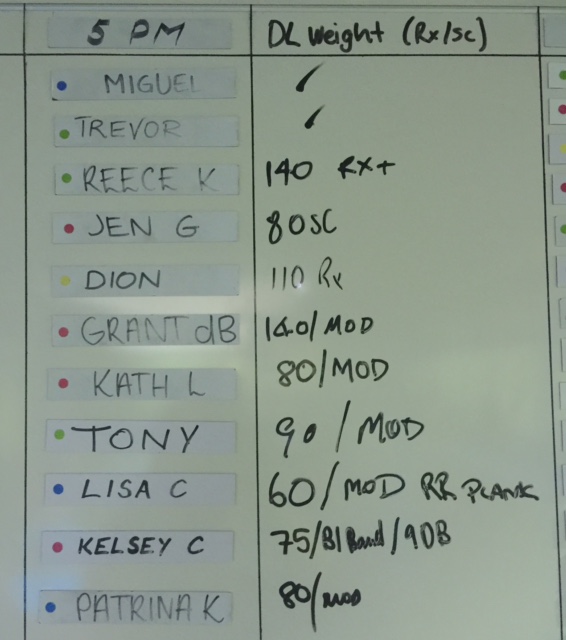 5 PM DL Weight (Rx/sc)
MIGUEL ✓
TREVOR ✓
REECE K 140 RX+
JEN G 80SC
DION 110 Rx
GRANT dB 140/MOD
KATH L 80/MOD
TONY 90/MOD
LISA C 60/MOD RR PLANK
KELSEY C 75/Bl Band/90B
PATRINA K 80/MOD